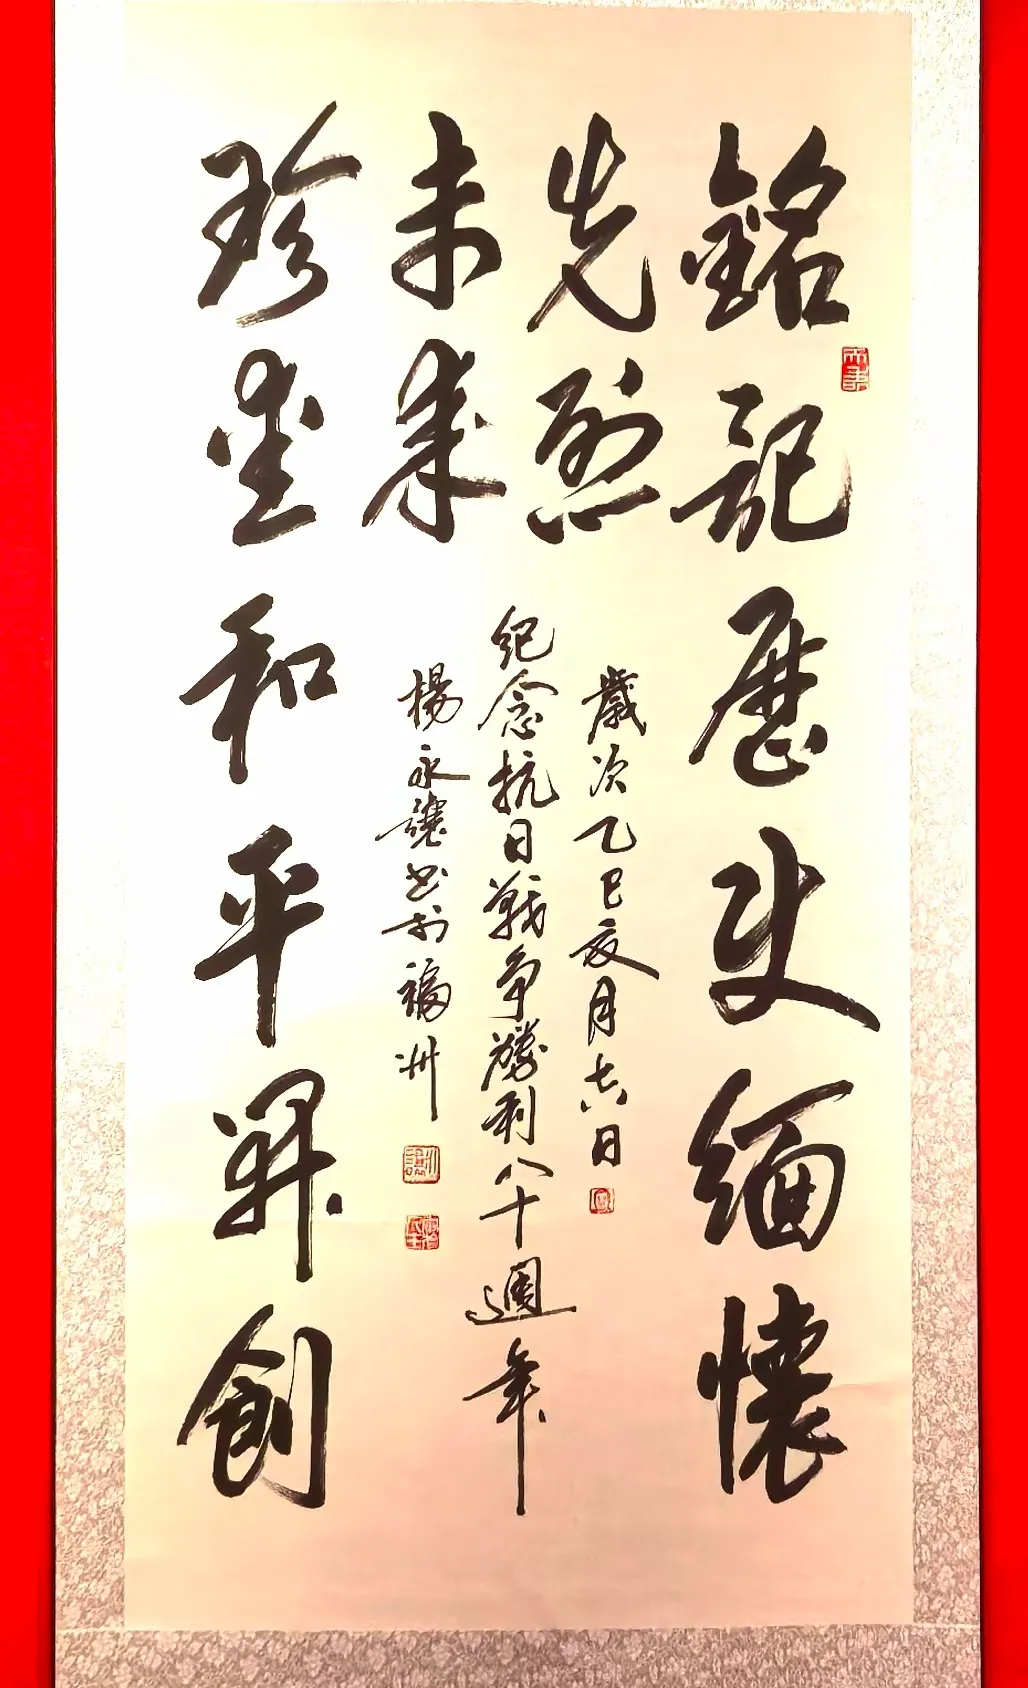 銘記歷史緬懷
先烈
珍愛和平開創
未來
歲次乙巳亥月日
紀念抗日戰爭勝利八十週年
楊永書於福州